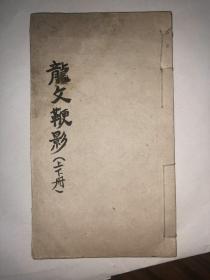 龍文鞭影(上下册)